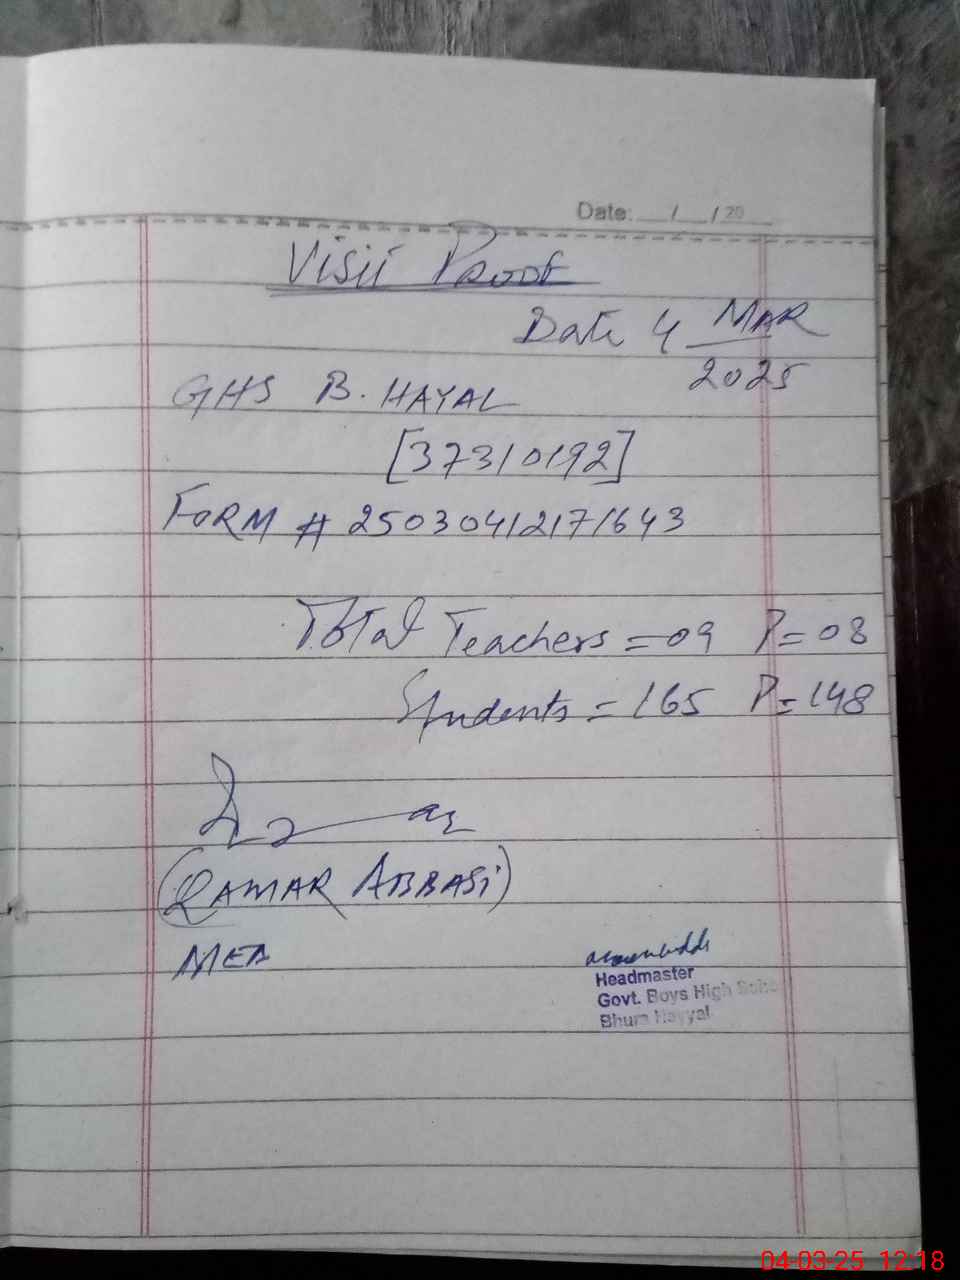 Date: __/__/20__
Visit Proof
Date 4 MAR
2025
GHS B. HAYAL
[37310192]
FORM # 25030412171643
Total Teachers = 09 P = 08
Students = 165 P = 148
(QAMAR ABBASi)
MEA
Headmaster
Govt. Boys High
Bhura Hayyal
04-03-25 12:18